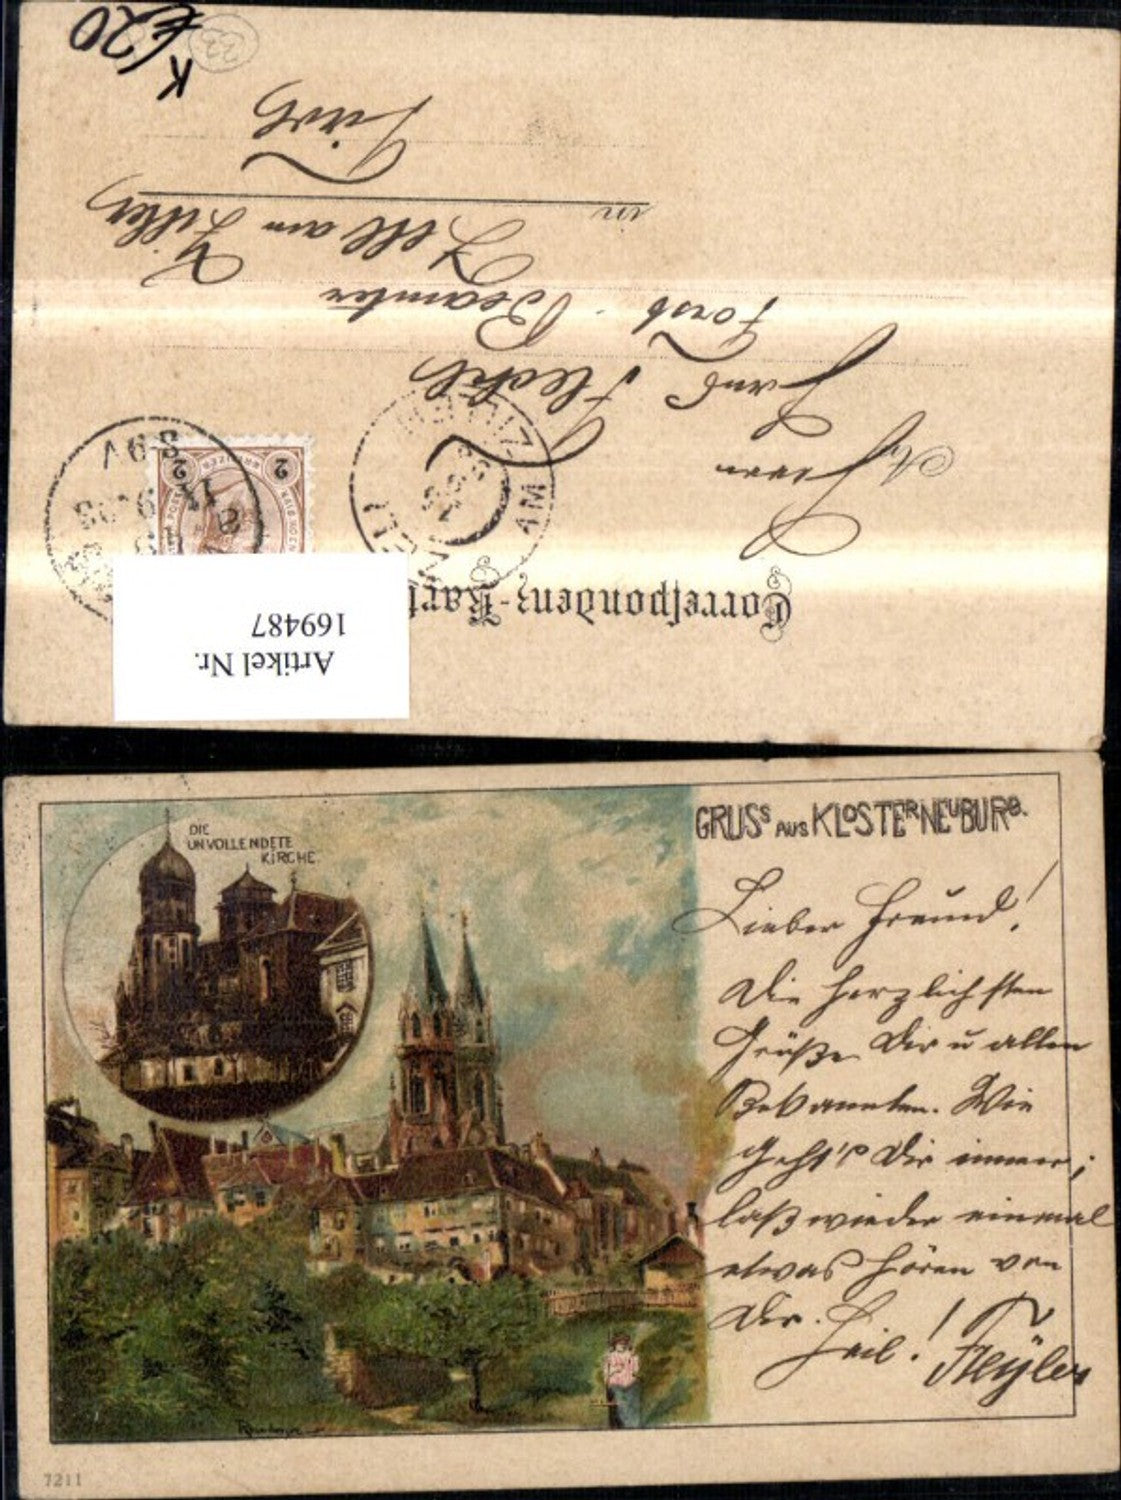 Correspondenz-Kart
Herrn
Hans Flechl
Forst-Beamter
Zell am Ziller
in
Tirol
2 2
ZELL AM ZILLER
98
Artikel Nr.
169487
K €20
22
GRUSS AUS KLOSTERNEUBURG.
DIE
UNVOLLENDETE
KIRCHE.
Lieber Freund!
Die herzlichsten
Grüße Dir u allen
Bekannten. Wie
geht's Dir immer;
laß wieder einmal
etwas hören von
Dir.
Heil!
7211